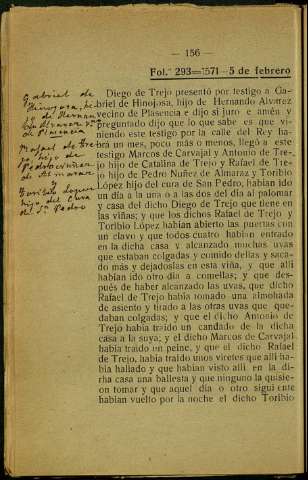 — 156 —
Fol.º 293=1571—5 de febrero
Gabriel de
Hinojosa, hi-
jo de Hernan-
do Alvarez vº
de Plasencia
Rafael de Tre
jo hijo de
Pedro Nuñez
de Almaraz
y
Toribio Lopez
hijo del Cura
de Sn Pedro
Diego de Trejo presentó por testigo a Ga-
briel de Hinojosa, hijo de Hernando Alvarez
vecino de Plasencia y dijo si juro e amén y
preguntado dijo que lo que sabe es que vi-
niendo este testigo por la calle del Rey ha-
brá un mes, poco más o menos, llegó a este
testigo Marcos de Carvajal y Antonio de Tre-
jo hijo de Catalina de Trejo y Rafael de Tre-
jo hijo de Pedro Nuñez de Almaraz y Toribio
López hijo del cura de San Pedro, habían ido
un día a la una o a las dos del día al palomar
y casa del dicho Diego de Trejo que tiene en
las viñas; y que los dichos Rafael de Trejo y
Toribio López habían abierto las puertas con
un clavo y que todos cuatro habían entrado
en la dicha casa y alcanzado muchas uvas
que estaban colgadas y comido dellas y saca-
do más y dejadoslas en esta viña, y que allí
habían ido otro día a comellas; y que des-
pués de haber alcanzado las uvas, que dicho
Rafael de Trejo había tomado una almohada
de asiento y tirado a las otras uvas que que-
daban colgadas; y que el dicho Antonio de
Trejo había traído un candado de la dicha
casa a la suya; y el dicho Marcos de Carvajal
había traído un peine, y que el dicho Rafael
de Trejo, había traído unos viretes que allí ha-
bía hallado y que habían visto allí en la di-
cha casa una ballesta y que ninguno la quisie-
ron tomar y que aquel día o otro siguiente
habían vuelto por la noche el dicho Toribio